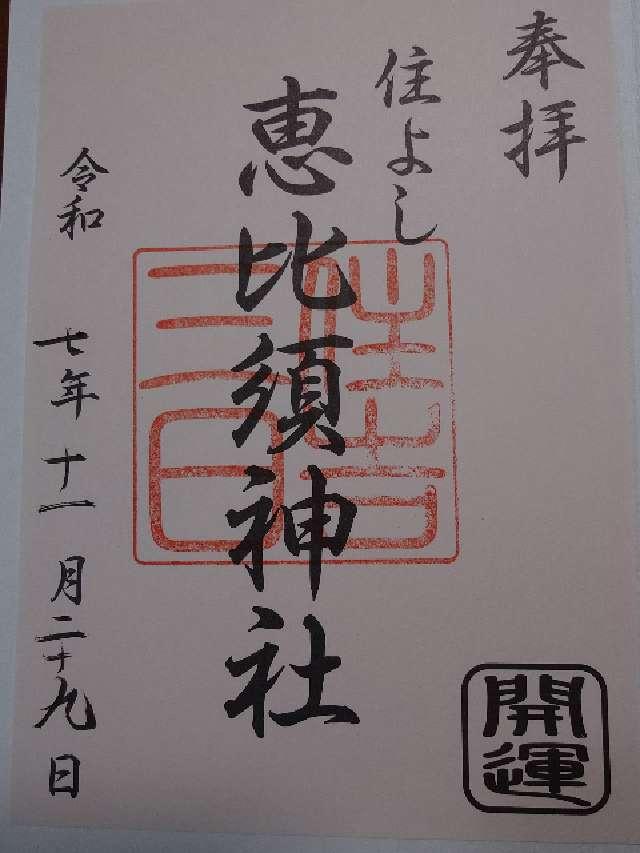 奉拝
住よし
恵比須神社
令和七年十一月二十九日
住吉
三日
開運